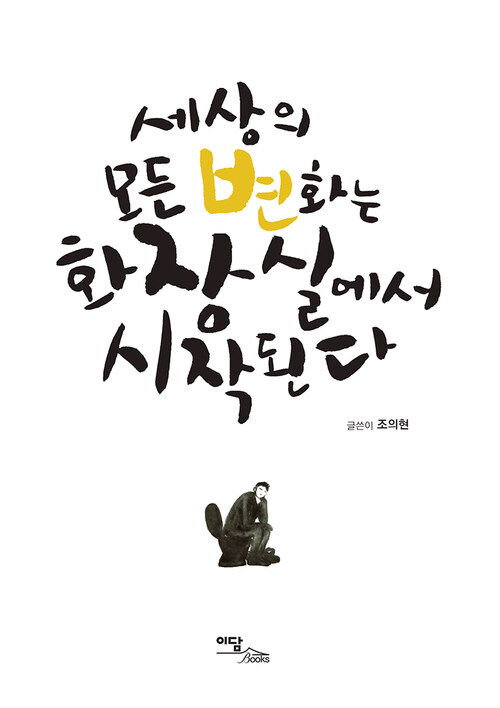 세상의
모든 변화는
화장실에서
시작된다
글쓴이 조의현
이담
Books